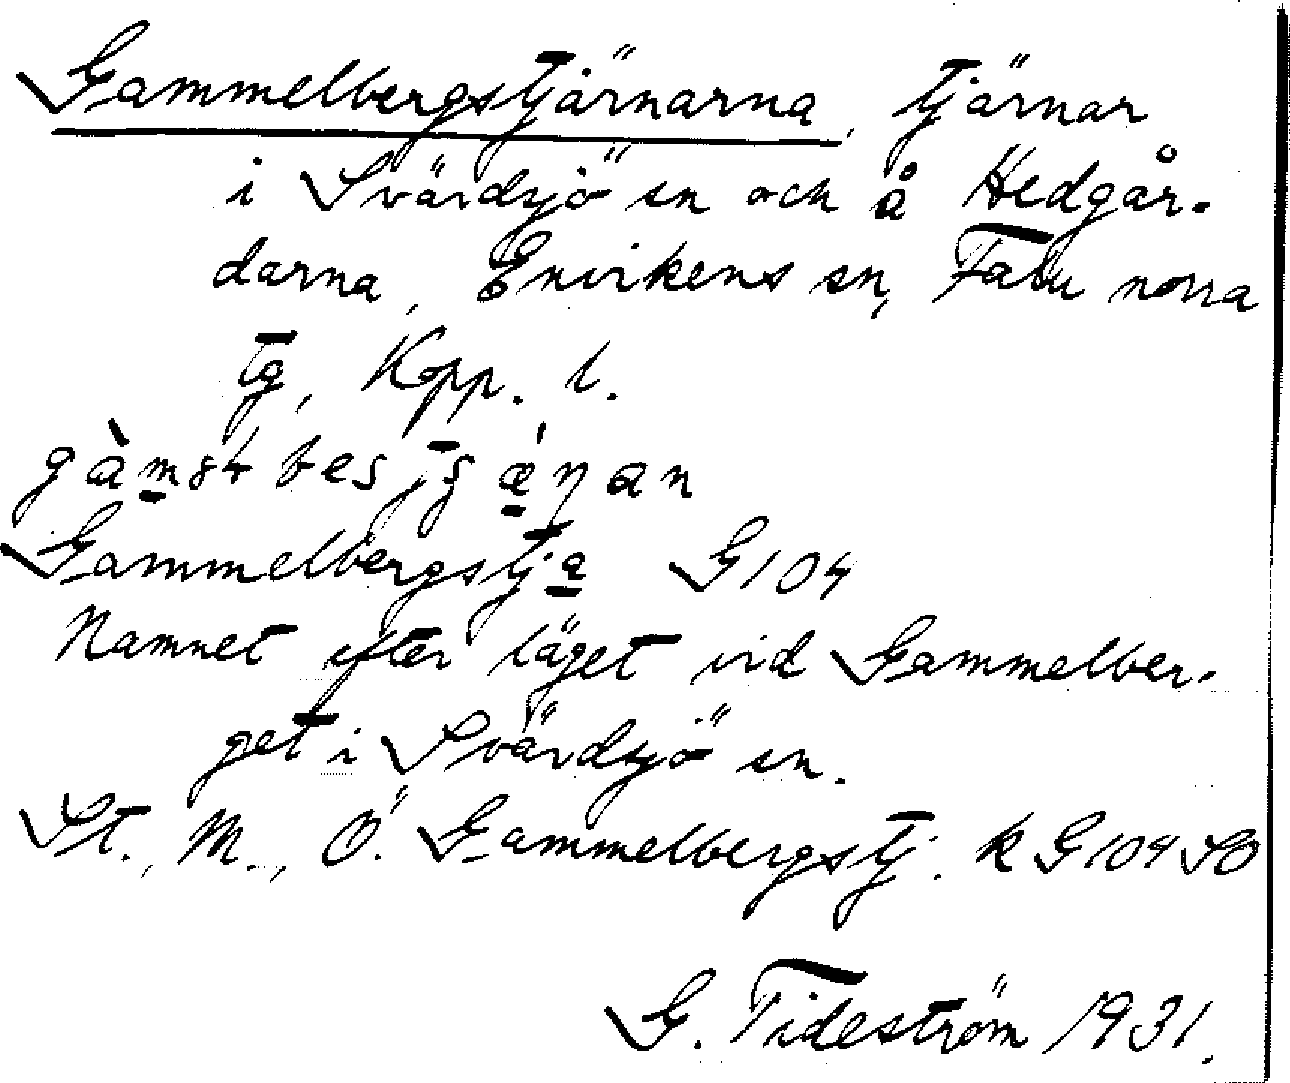 Gammelbergstjärnarna, tjärnar
i Svärdsjö sn och å Hedgår-
darna, Envikens sn, Falu norra
tg, Kopp. l.
Gammelbergstja G 104
Namnet efter läget vid Gammelber-
get i Svärdsjö sn.
St., M., Ö. Gammelbergstj. k G 104 SO
G. Tideström 1931.